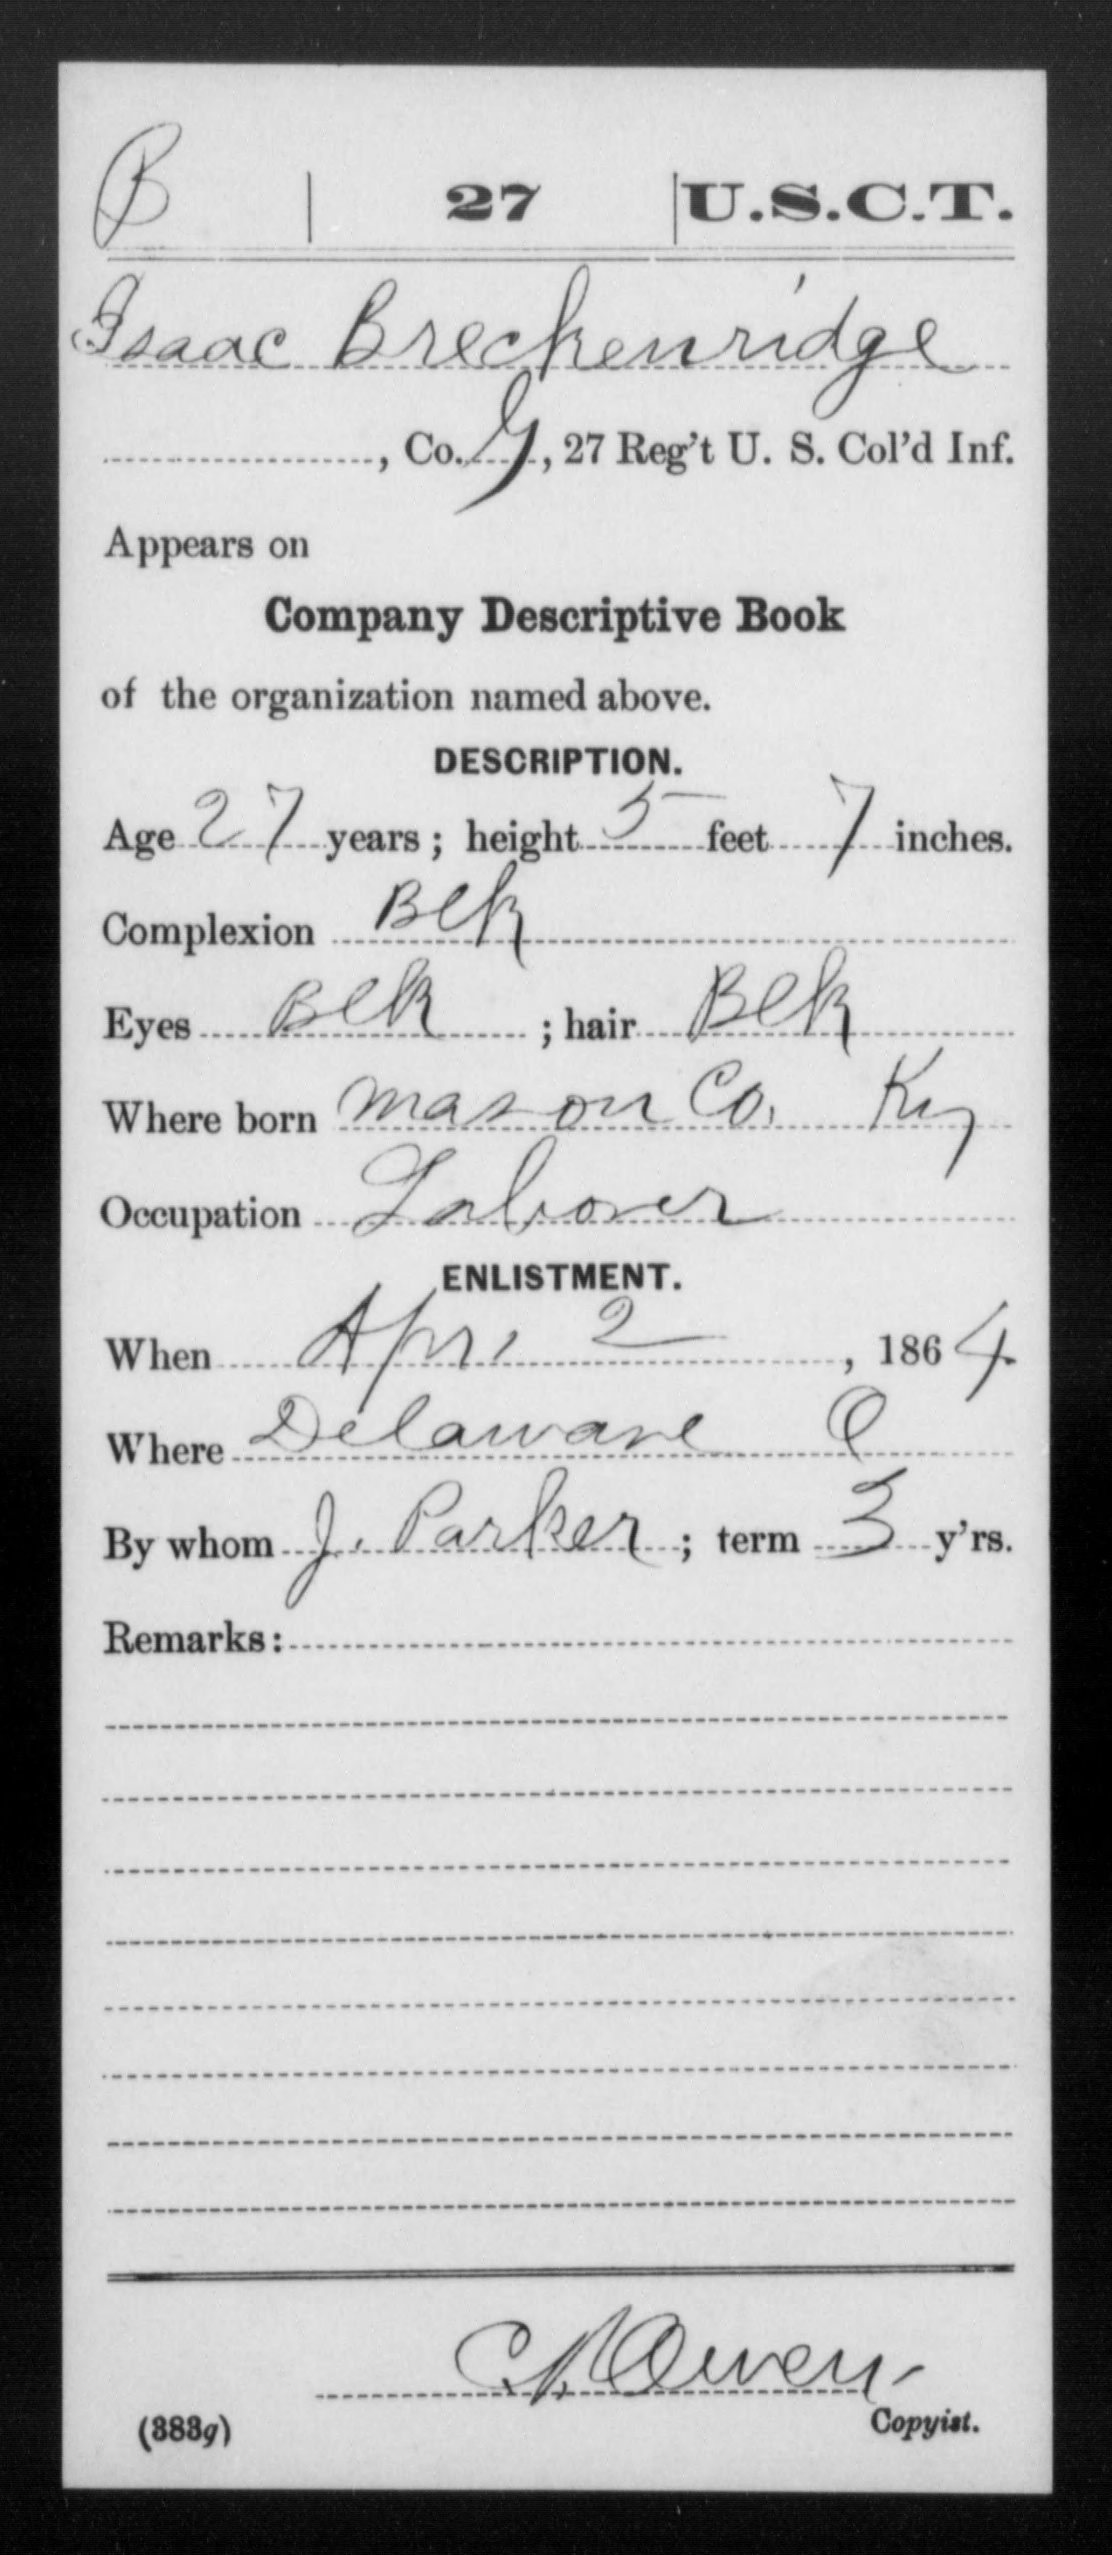 B | 27 | U.S.C.T.
Isaac Breckenridge
, Co. G, 27 Reg't U. S. Col'd Inf.
Appears on
Company Descriptive Book
of the organization named above.
DESCRIPTION.
Age 27 years; height 5 feet 7 inches.
Complexion Blk
Eyes Blk ; hair Blk
Where born Mason Co. Ky
Occupation Laborer
ENLISTMENT.
When Apri 2, 1864.
Where Delaware O
By whom J. Parker; term 3 y'rs.
Remarks:
Owen
(383g) Copyist.